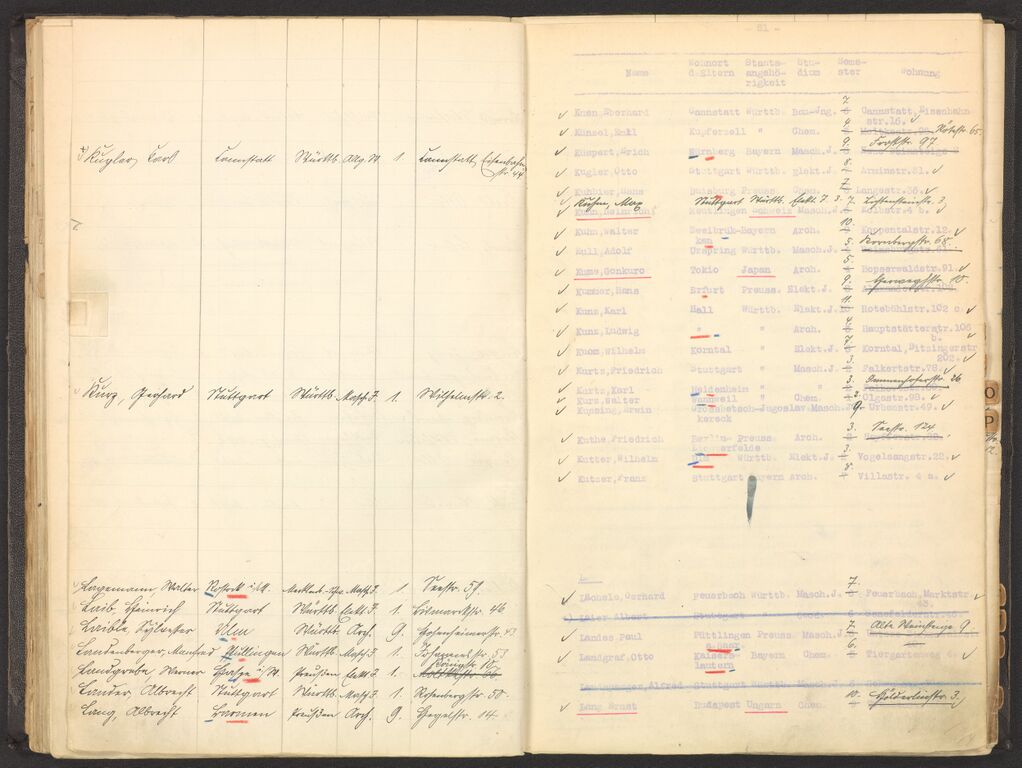 Kugler, Carl Cannstatt Württb. Allg. W. 1. Cannstatt, Eisenbahn
str. 44
Kurz, Gerhard Stuttgart Württb. Masch. J. 1. Wilhelmstr. 2.
Lagemann, Walter Rostock i/M. Mecklenb.-Schw. Masch. J. 1. Seestr. 57.
Laib, Heinrich Stuttgart Württb. Elekt. J. 1. Bismarckstr. 46
Laible, Sylvester Ulm Württb. Arch. 9. Hohenheimerstr. 43
Landenberger, Manfred Württb. Masch. J. 1. Johannesstr. 53
Königstr. 10
Landgrebe, Werner Preußen Elekt. J. 1.
Lander, Albrecht Stuttgart Württb. Masch. J. 1. Rosenbergstr. 50.
Lang, Albrecht Barmen Preußen Arch. 9. Hegelstr. 14
- 81 -
Name Wohnort d.Eltern Staats-angehö-rigkeit Stu-dium Seme-ster Wohnung
Eberhard Cannstatt Württb. Bau-Jng. 7. Cannstatt, Eisenbahn
str.16.
Künzel, Emil Kupferzell " Chem. 4. Rotestr. 65.
Küspert, Erich Nürnberg Bayern Masch.J. 9. Forststr. 97
Kugler, Otto Stuttgart Württb. Elekt.J. 8. Arminstr.31.
Kuhbier, Hans Duisburg Preuss. Chem. 7. Langestr.36.
Kuhn, Max Stuttgart Württb. Elekt. J. 3. 7.
Kuhn, Heinrich Reutlingen Schweiz Masch.J. Moltkestr.4 b.
Kuhn, Walter Zweibrük-Bayern Arch. 10. Koppentalstr.12.
ken
Kull, Adolf Urspring Württb. Masch.J. 5. Nornbergstr. 68.
Kume, Gonkuro Tokio Japan Arch. 5. Hopserwaldstr.91.
Kummer, Hans Erfurt Preuss. Elekt.J. 9. Herwegstr. 10.
Kunz, Karl Hall Württb. Elekt.J. 11. Rotebühlstr.102 c.
Kunz, Ludwig " " Arch. 4. Hauptstätterstr.106
b.
Kuom, Wilhelm Korntal " Elekt.J. 7. Korntal, Ditzingerstr
202.
Kurtz, Friedrich Stuttgart " Masch.J. 3. Falkertstr.78.
Kurtz, Karl Heidenheim " 3. Immenhoferstr. 26
Kurz, Walter Wannweil " Chem. 3. Olgastr.98.
Kussing, Erwin Grossbetsch-Jugoslav. Masch.J. 9. Urbanstr.49.
kereck
Kuthe, Friedrich Berlin- Preuss. Arch. 3. Seestr. 124
Lichterfelde
Kutter, Wilhelm Ulm Württb. Elekt.J. 3. Vogelsangstr.22.
Kutzer, Franz Stuttgart Bayern Arch. 8. Villastr. 4 a.
L.
Lächele, Gerhard Feuerbach Württb. Masch.J. 7. Feuerbach, Marktstr
43.
Laier Albert Stuttgart
Landes Paul Püttlingen Preuss. Masch.J. 7. Alte Weinsteige 9.
a.Saar
Landgraf, Otto Kaisers- Bayern Chem. 6. Tiergartenweg
lautern
Alfred Stuttgart Württb. Masch.J.
Lang Ernst Budapest Ungarn Chem. 10. Hölderlinstr. 3.
O
P